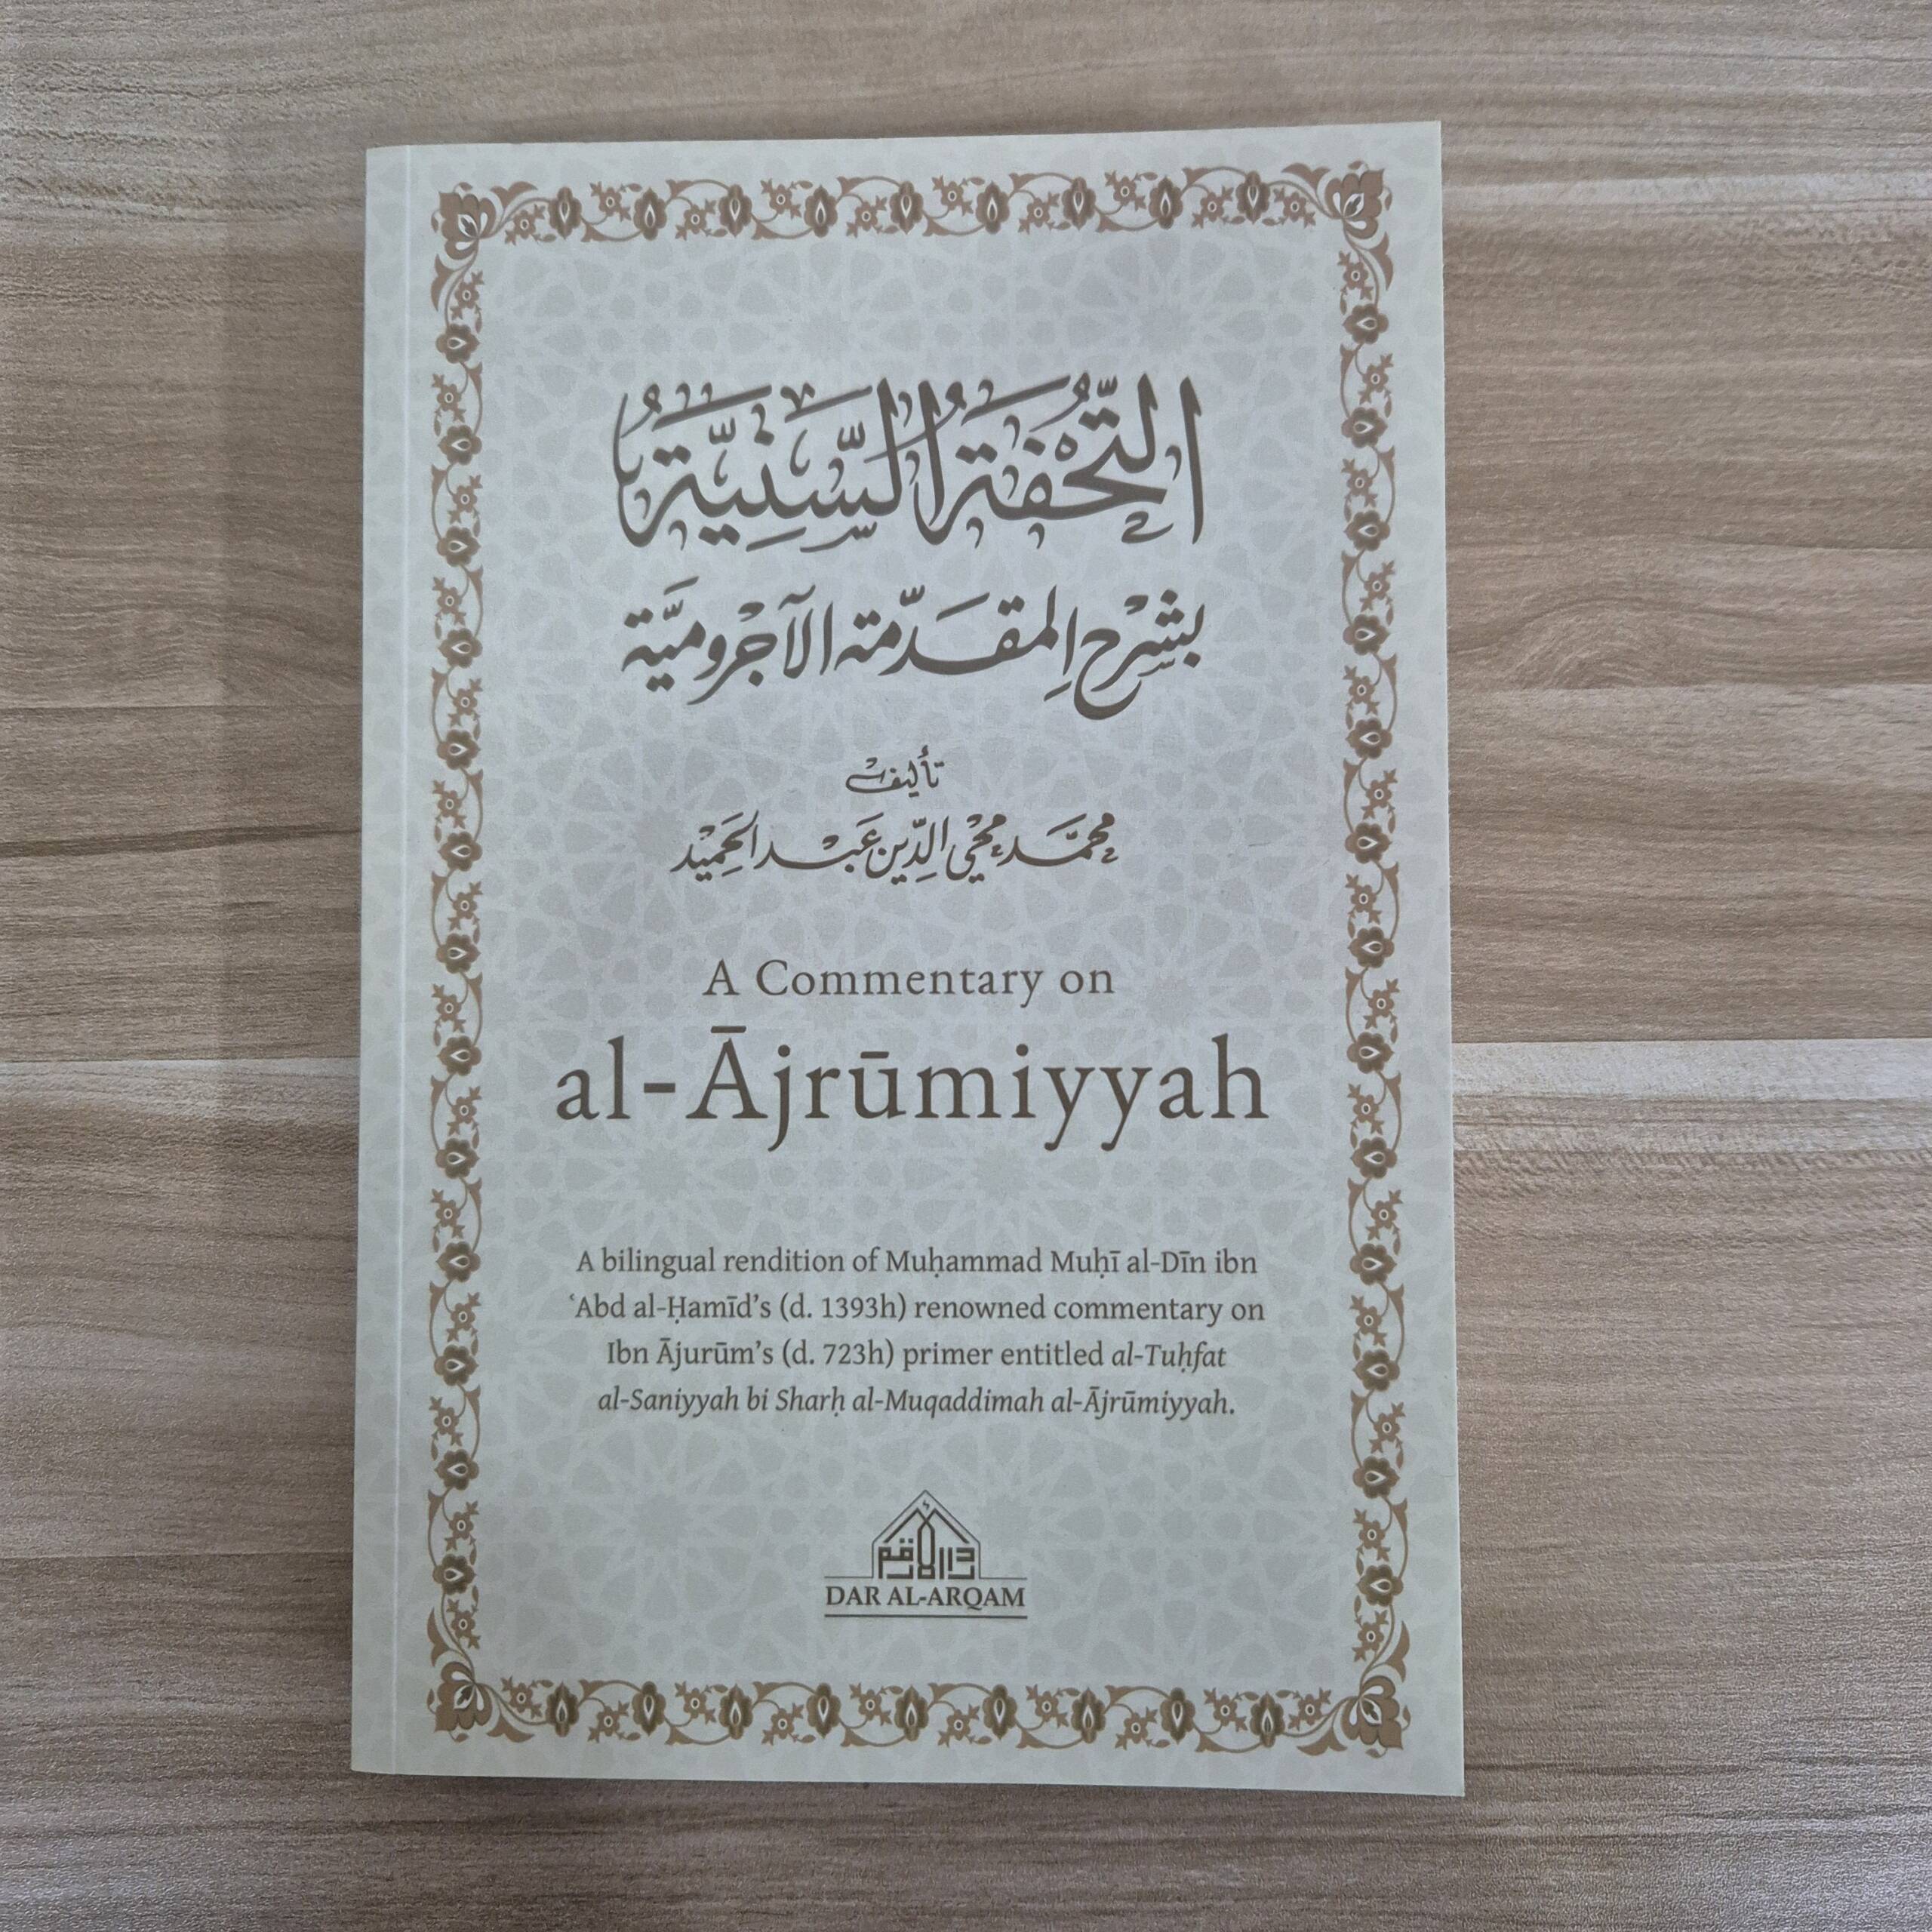 التُّحْفَةُ السَّنِيَّةُ
بشَرْحِ المقَدّمَة الآجْروميَّة
تأليفْ
محمَّد محْيي الدِّين عَبْد الحَمِيْد
A Commentary on
al-Ājrūmiyyah
A bilingual rendition of Muḥammad Muḥī al-Dīn ibn
ʿAbd al-Ḥamīd’s (d. 1393h) renowned commentary on
Ibn Ājurūm’s (d. 723h) primer entitled al-Tuḥfat
al-Saniyyah bi Sharḥ al-Muqaddimah al-Ājrūmiyyah.
دار الأرقم
DAR AL-ARQAM